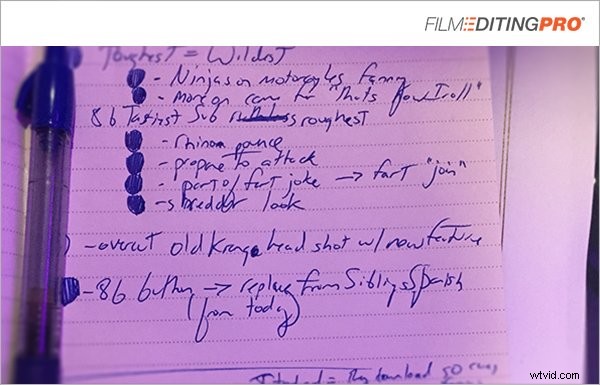 FILMEDITINGPRO
Toughest = Wildest
- Ninjas on motorcycles funny
- more on came for "that's how I roll"
86 Fastest sub ruthless roughest
- rhino pounce
- prepare to attack
- part of fart joke → fart "join"
- shredder look
) - overcut old Krang head shot w/ new texture
- 86 button → replace from Siblings Spanish
(from today)
= download 50
wtvid.com